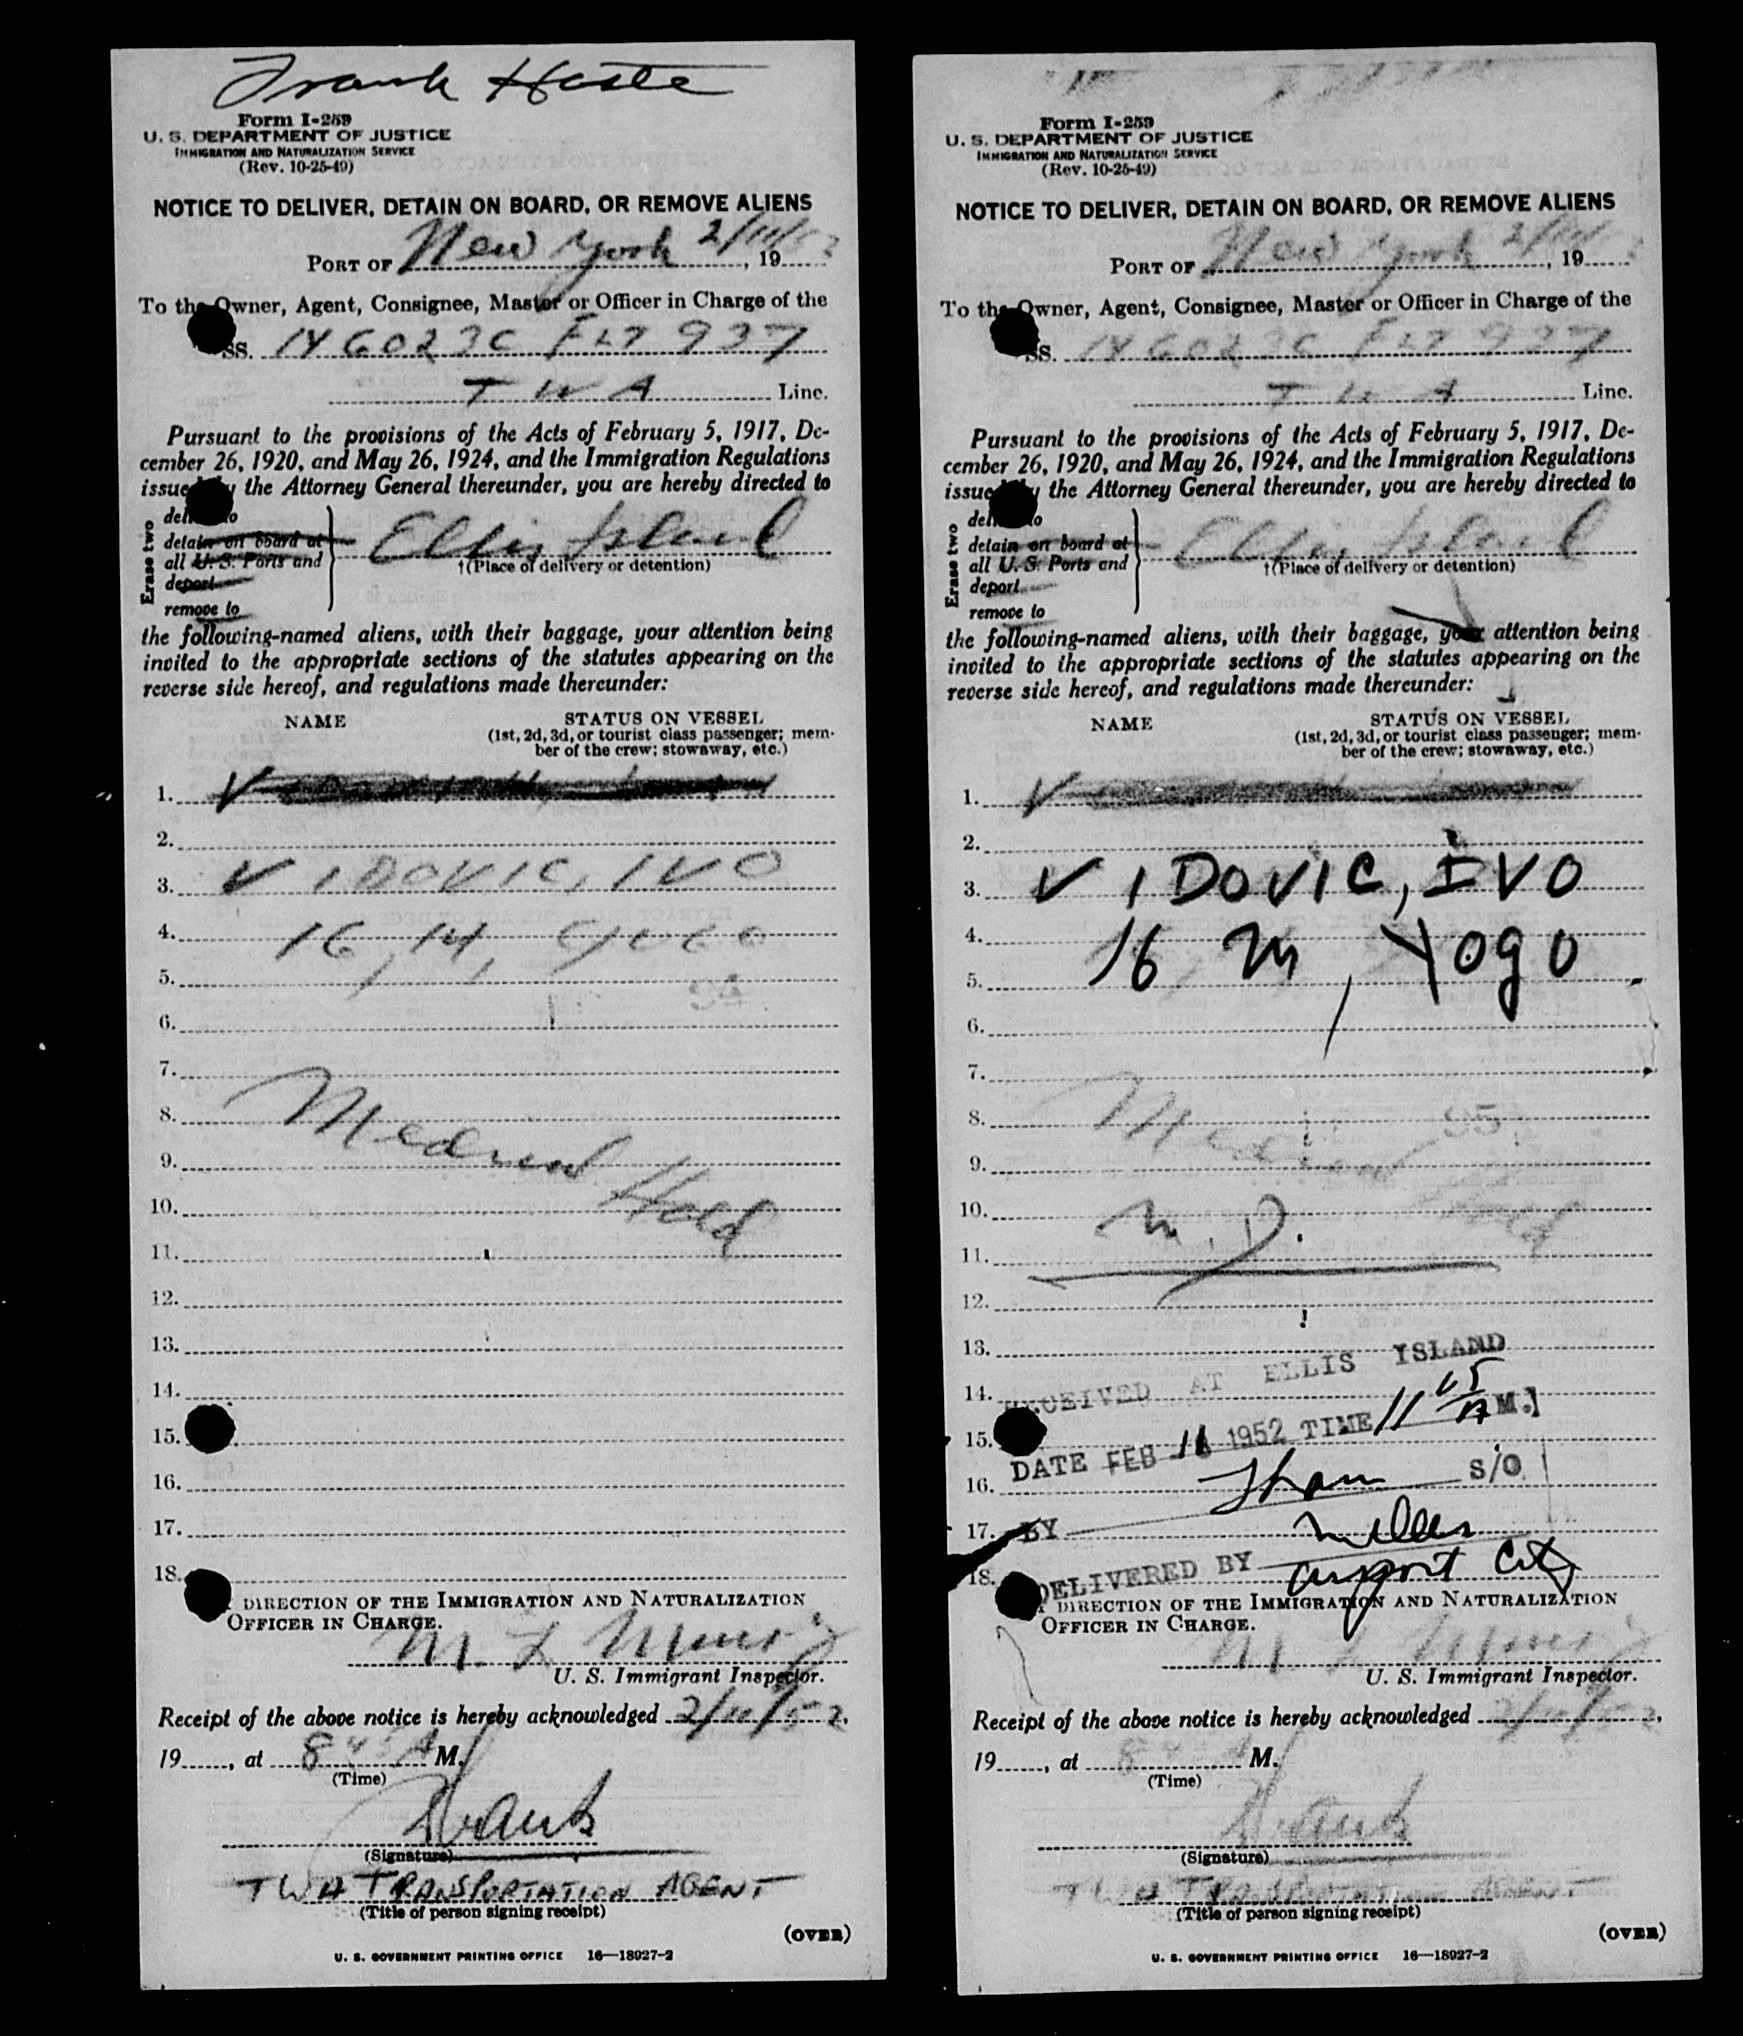 Frank
Form I-259
U. S. DEPARTMENT OF JUSTICE
IMMIGRATION AND NATURALIZATION SERVICE
(Rev. 10-25-49)
NOTICE TO DELIVER, DETAIN ON BOARD, OR REMOVE ALIENS
PORT OF New York 2/11/52, 19
To the Owner, Agent, Consignee, Master or Officer in Charge of the
SS. N 6023C FLT 937
TWA Line.
Pursuant to the provisions of the Acts of February 5, 1917, De-
cember 26, 1920, and May 26, 1924, and the Immigration Regulations
issued by the Attorney General thereunder, you are hereby directed to
Erase two
deliver to
detain on board at
all U. S. Ports and
deport
remove to
Ellis Island
†(Place of delivery or detention)
the following-named aliens, with their baggage, your attention being
invited to the appropriate sections of the statutes appearing on the
reverse side hereof, and regulations made thereunder:
NAME STATUS ON VESSEL
(1st, 2d, 3d, or tourist class passenger; mem-
ber of the crew; stowaway, etc.)
1.
2.
3. VIDOVIC, IVO
4. 16, M, Yogo
5.
94
6.
7.
8. Medical
9.
10. Hold
11.
12.
13.
14.
15.
16.
17.
18.
DIRECTION OF THE IMMIGRATION AND NATURALIZATION
OFFICER IN CHARGE.
M. L.
U. S. Immigrant Inspector.
Receipt of the above notice is hereby acknowledged 2/11/52,
19, at 8 45 A M.
(Time)
(Signature)
TWA TRANSPORTATION AGENT
(Title of person signing receipt)
(OVER)
U. S. GOVERNMENT PRINTING OFFICE 16—18927-2
Form I-259
U. S. DEPARTMENT OF JUSTICE
IMMIGRATION AND NATURALIZATION SERVICE
(Rev. 10-25-49)
NOTICE TO DELIVER, DETAIN ON BOARD, OR REMOVE ALIENS
PORT OF New York 2/11/52, 19
To the Owner, Agent, Consignee, Master or Officer in Charge of the
SS. N 6023C FLT 937
TWA Line.
Pursuant to the provisions of the Acts of February 5, 1917, De-
cember 26, 1920, and May 26, 1924, and the Immigration Regulations
issued by the Attorney General thereunder, you are hereby directed to
Erase two
deliver to
detain on board at
all U. S. Ports and
deport
remove to
Ellis Island
†(Place of delivery or detention)
the following-named aliens, with their baggage, your attention being
invited to the appropriate sections of the statutes appearing on the
reverse side hereof, and regulations made thereunder:
NAME STATUS ON VESSEL
(1st, 2d, 3d, or tourist class passenger; mem-
ber of the crew; stowaway, etc.)
1.
2.
3. VIDOVIC, IVO
4. 16 M, Yogo
5.
6.
7.
8. Medical 95
9.
10. M.D. Hold
11.
12.
13.
RECEIVED AT ELLIS ISLAND
14.
DATE FEB 11 1952 TIME 11 05 A M.
15.
16. S/O
17. BY
18. DELIVERED BY Miller
airport City
DIRECTION OF THE IMMIGRATION AND NATURALIZATION
OFFICER IN CHARGE.
M. L.
U. S. Immigrant Inspector.
Receipt of the above notice is hereby acknowledged 2/11/52,
19, at 8 45 A M.
(Time)
(Signature)
TWA TRANSPORTATION AGENT
(Title of person signing receipt)
(OVER)
U. S. GOVERNMENT PRINTING OFFICE 16—18927-2